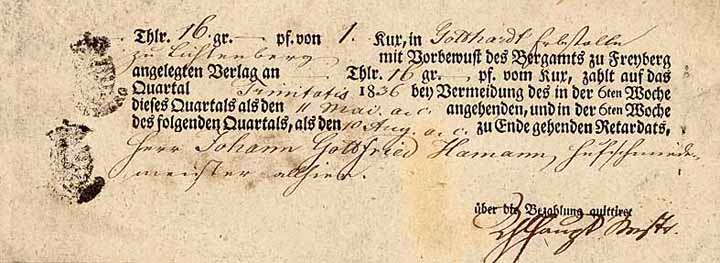 Thlr. 16 gr. — pf. von 1. Kux, in Gotthardt Erbstolln
zu Lichtenberg mit Vorbewust des Bergamts zu Freyberg
angelegten Verlag an — Thlr. 16 gr. — pf. vom Kux, zahlt auf das
Quartal Trinitatis 1836 bey Vermeidung des in der 6ten Woche
dieses Quartals als den 11 Mai. a. c. angehenden, und in der 6ten Woche
des folgenden Quartals, als den 10 Aug. a. c. zu Ende gehenden Retardats,
Herr Johann Gottfried Hamann, Hufschmiede-
meister alhier.
über die Bezahlung quittirt